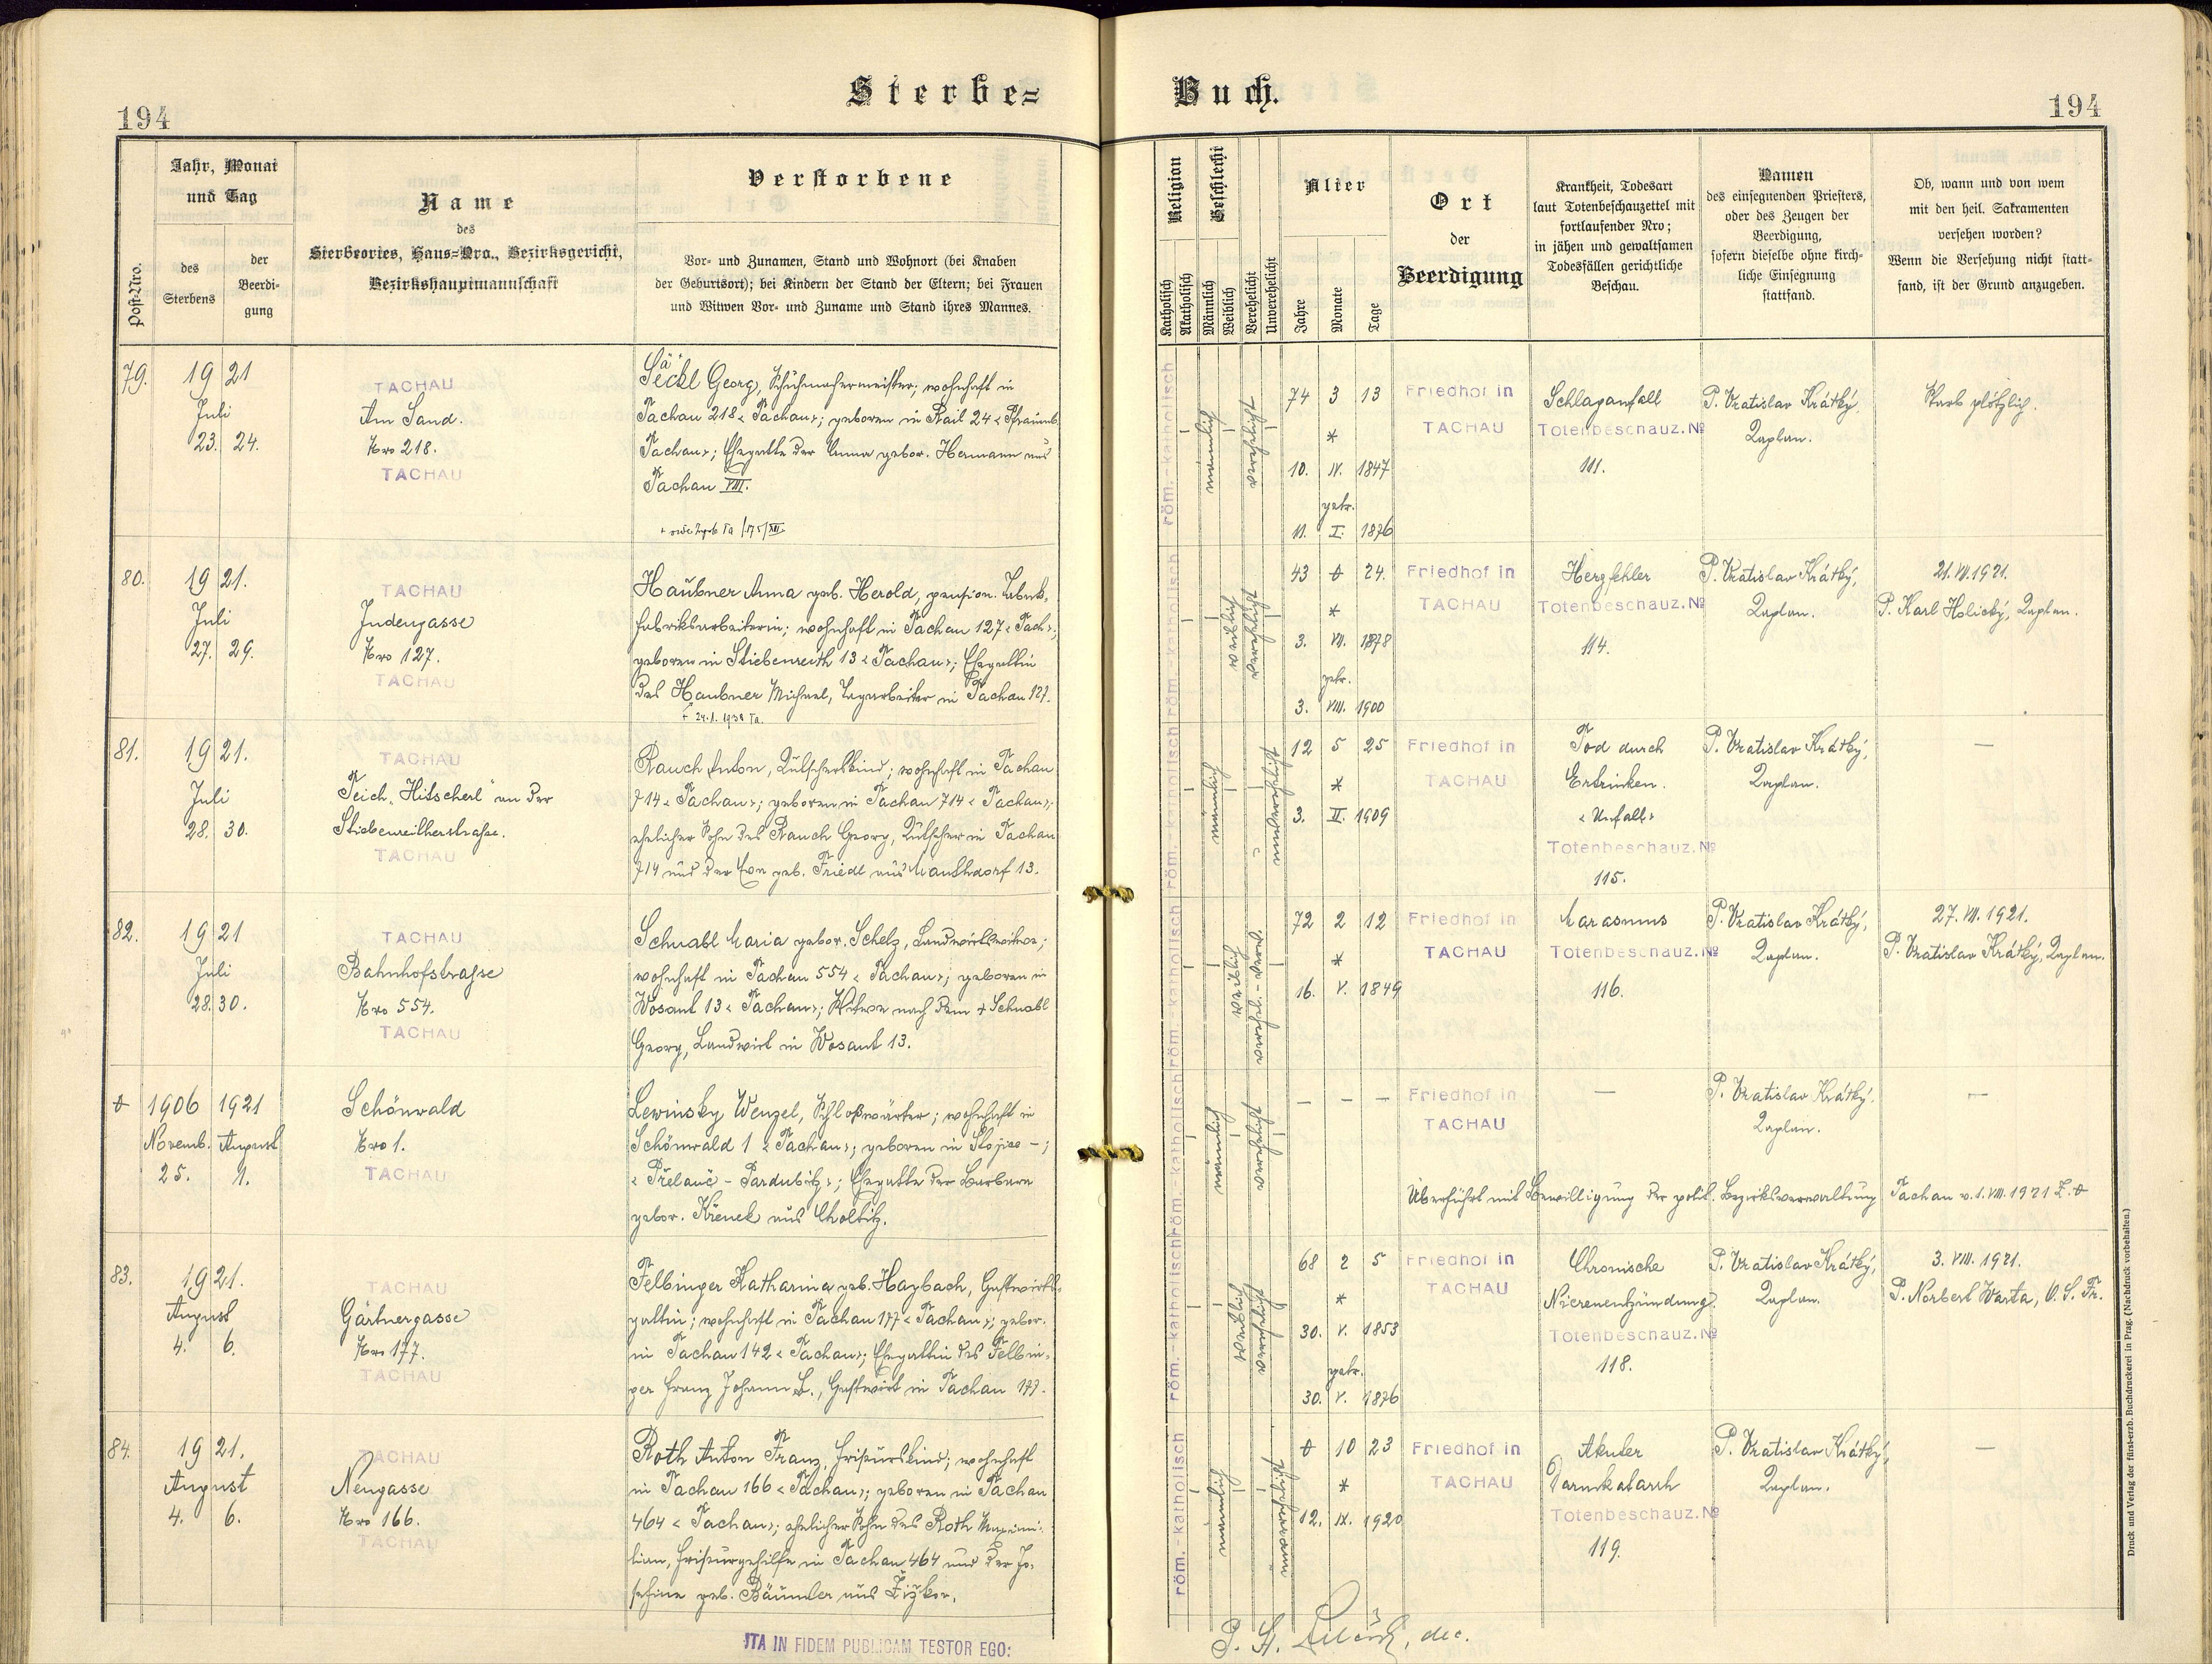 Sterbe-
Buch.
194
194
Post-Nro.
Jahr, Monat
und Tag
des
Sterbens
der
Beerdi-
gung
Name
des
Sterbeortes, Haus-Nro., Bezirksgericht,
Bezirkshauptmannschaft
Verstorbene
Vor- und Zunamen, Stand und Wohnort (bei Knaben
der Geburtsort); bei Kindern der Stand der Eltern; bei Frauen
und Witwen Vor- und Zuname und Stand ihres Mannes.
Religion
Katholisch
Akatholisch
Geschlecht
Männlich
Weiblich
Verehelicht
Unverehelicht
Alter
Jahre
Monate
Tage
Ort
der
Beerdigung
Krankheit, Todesart
laut Totenbeschauzettel mit
fortlaufender Nro;
in jähen und gewaltsamen
Todesfällen gerichtliche
Beschau.
Namen
des einsegnenden Priesters,
oder des Zeugen der
Beerdigung,
sofern dieselbe ohne kirch-
liche Einsegnung
stattfand.
Ob, wann und von wem
mit den heil. Sakramenten
versehen worden?
Wenn die Versehung nicht statt-
fand, ist der Grund anzugeben.
79.
19 21
Juli
23. 24.
TACHAU
Am Sand.
Nro 218.
TACHAU
Säckl Georg, Schuhmachermeister; wohnhaft in
Tachau 218 < Tachau >; geboren in Rail 24 < Pfraumb.
Tachau >; Ehegatte der Anna gebor. Hermann aus
Tachau VIII.
röm.-katholisch
männlich
verehelicht
74 3 13
*
10. IV. 1847
getr.
11. I. 1876
Friedhof in
TACHAU
Schlaganfall
Totenbeschauz. №
111.
P. Vratislav Krátký,
Kaplan.
Starb plötzlich.
80.
19 21.
Juli
27. 29.
TACHAU
Judengasse
Nro 127.
TACHAU
Haubner Anna geb. Herold, pension. Tabak-
fabriksarbeiterin; wohnhaft in Tachau 127 < Tach. >;
geboren in Stiebenreith 13 < Tachau >; Ehegattin
des Haubner Michael, Tagarbeiter in Tachau 127.
+ 24.1. 1938 Ta.
röm.-katholisch
weiblich
verehelicht
43 0 24.
*
3. VII. 1878
getr.
3. VIII. 1900
Friedhof in
TACHAU
Herzfehler
Totenbeschauz. №
114.
P. Vratislav Krátký,
Kaplan.
21. VII. 1921.
P. Karl Holický, Kaplan.
81.
19 21.
Juli
28. 30.
TACHAU
Teich „Hitscherl“ an der
Stiebenreitherstraße.
TACHAU
Rauch Anton, Kutscherskind; wohnhaft in Tachau
714 < Tachau >; geboren in Tachau 714 < Tachau >;
ehelicher Sohn des Rauch Georg, Kutscher in Tachau
714 und der Eva geb. Friedl aus Mauthdorf 13.
röm.-katholisch
männlich
unverehelicht
12 5 25
*
3. II. 1909
Friedhof in
TACHAU
Tod durch
Ertrinken.
< Unfall >
Totenbeschauz. №
115.
P. Vratislav Krátký,
Kaplan.
—
82.
19 21
Juli
28. 30.
TACHAU
Bahnhofstraße
Nro 554.
TACHAU
Schnabl Maria gebor. Schelz, Landwirtswitwe;
wohnhaft in Tachau 554 < Tachau >; geboren in
Wosant 13 < Tachau >; Witwe nach dem + Schnabl
Georg, Landwirt in Wosant 13.
röm.-katholisch
weiblich
verehel. - verw.
72 2 12
*
16. V. 1849
Friedhof in
TACHAU
Marasmus
Totenbeschauz. №
116.
P. Vratislav Krátký,
Kaplan.
27. VII. 1921.
P. Vratislav Krátký, Kaplan.
0
1906 1921
Novemb. August
25. 1.
Schönwald
Nro 1.
TACHAU
Lewinsky Wenzel, Schloßwärter; wohnhaft in
Schönwald 1 < Tachau >; geboren in Stojice - ;
< Přelauč - Pardubitz >; Ehegatte der Barbara
gebor. Křenek aus Choltitz.
röm.-katholisch
männlich
verehelicht
— — —
Friedhof in
TACHAU
—
P. Vratislav Krátký,
Kaplan.
—
Überführt mit Bewilligung der polit. Bezirksverwaltung Tachau v. 1. VIII. 1921 Z. 0
83.
19 21.
August
4. 6.
TACHAU
Gärtnergasse
Nro 177.
TACHAU
Felbinger Katharina geb. Haybach, Gastwirts-
gattin; wohnhaft in Tachau 177 < Tachau >; gebor.
in Tachau 142 < Tachau >; Ehegattin des Felbin-
ger Franz Johann B., Gastwirt in Tachau 177.
röm.-katholisch
weiblich
verehelicht
68 2 5
*
30. V. 1853
getr.
30. V. 1876
Friedhof in
TACHAU
Chronische
Nierenentzündung.
Totenbeschauz. №
118.
P. Vratislav Krátký,
Kaplan.
3. VIII. 1921.
P. Norbert Warta, O. S. Fr.
84.
19 21.
August
4. 6.
TACHAU
Neugasse
Nro 166.
TACHAU
Roth Anton Franz, Friseurskind; wohnhaft
in Tachau 166 < Tachau >; geboren in Tachau
464 < Tachau >; ehelicher Sohn des Roth Maximi-
lian, Friseurgehilfe in Tachau 464 und der Jo-
sefine geb. Bäumler aus Žižkov.
röm.-katholisch
männlich
unverehelicht
0 10 23
*
12. IX. 1920
Friedhof in
TACHAU
Akuter
Darmkatarrh
Totenbeschauz. №
119.
P. Vratislav Krátký,
Kaplan.
—
ITA IN FIDEM PUBLICAM TESTOR EGO:
dec.
Druck und Verlag der fürst-erzb. Buchdruckerei in Prag. (Nachdruck vorbehalten.)